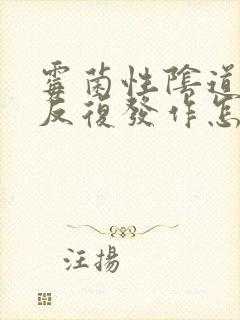 霉菌性陰道
反復發作怎
汪揚